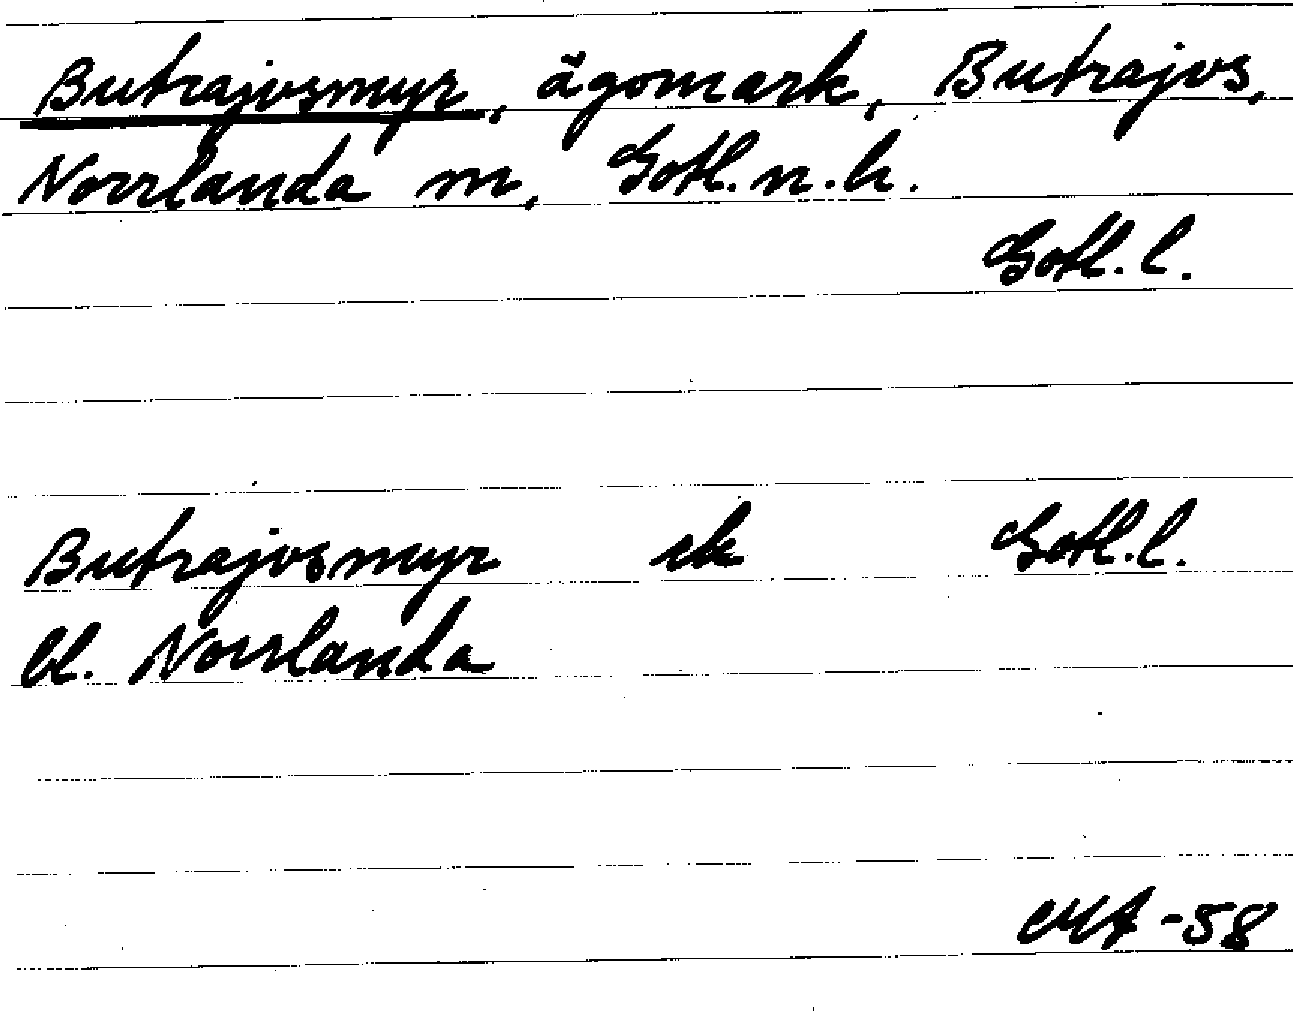 Butrajvsmyr, ägomark, Butrajvs,
Norrlanda sn, Gotl. n. h.
Gotl. l.
Butrajvsmyr ek Gotl. l.
bl. Norrlanda
MA -58